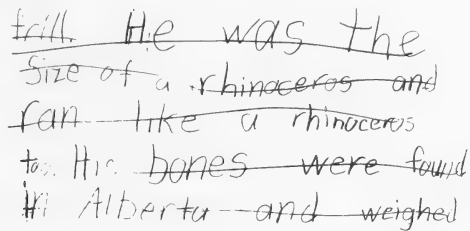 frill. He was the
size of a rhinoceros and
ran like a rhinoceros
too. His bones were found
in Alberta and weighed